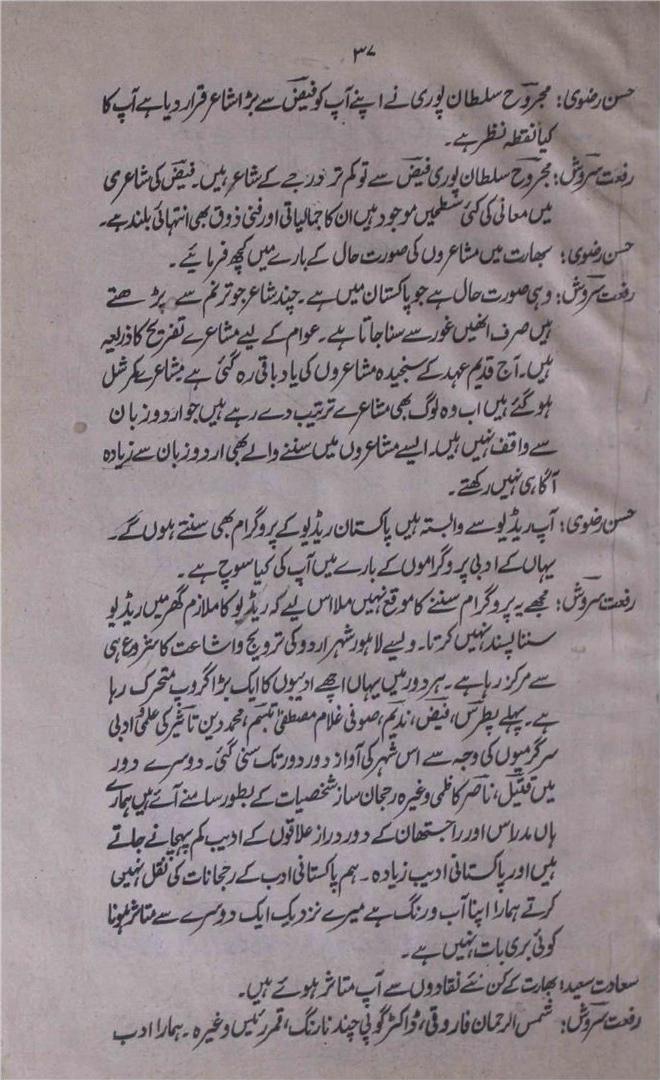 ۳۷
حسن رضوی: مجروح سلطان پوری نے اپنے آپ کو فیض سے بڑا شاعر قرار دیا ہے آپ کا
کیا نقطہ نظر ہے۔
رفعت سروش: مجروح سلطان پوری فیض سے تو کم تر درجے کے شاعر ہیں۔ فیض کی شاعری
میں معانی کی کئی سطحیں موجود ہیں ان کا جمالیاتی اور فنی ذوق بھی انتہائی بلند ہے۔
حسن رضوی: بھارت میں مشاعروں کی صورت حال کے بارے میں کچھ فرمائیے۔
رفعت سروش: وہی صورت حال ہے جو پاکستان میں ہے۔ چند شاعر جو ترنم سے پڑھتے
ہیں صرف انھیں غور سے سنا جاتا ہے۔ عوام کے لیے مشاعرے تفریح کا ذریعہ
ہیں۔ آج قدیم عہد کے سنجیدہ مشاعروں کی یاد باقی رہ گئی ہے مشاعرے کمرشل
ہو گئے ہیں اب وہ لوگ بھی مشاعرے ترتیب دے رہے ہیں جو اردو زبان
سے واقف نہیں ہیں۔ ایسے مشاعروں میں سننے والے بھی اردو زبان سے زیادہ
آگاہی نہیں رکھتے۔
حسن رضوی: آپ ریڈیو سے وابستہ ہیں پاکستان ریڈیو کے پروگرام بھی سنتے ہوں گے۔
یہاں کے ادبی پروگراموں کے بارے میں آپ کی کیا سوچ ہے۔
رفعت سروش: مجھے یہ پروگرام سننے کا موقع نہیں ملا اس لیے کہ ریڈیو کا ملازم گھر میں ریڈیو
سننا پسند نہیں کرتا۔ ویسے لاہور شہر اردو کی ترویج و اشاعت کا شروع ہی
سے مرکز رہا ہے۔ ہر دور میں یہاں اچھے ادیبوں کا ایک بڑا گروپ متحرک رہا
ہے۔ پہلے پطرس، فیض، ندیم، صوفی غلام مصطفیٰ تبسم، محمد دین تاثیر کی علمی و ادبی
سرگرمیوں کی وجہ سے اس شہر کی آواز دور دور تک سنی گئی۔ دوسرے دور
میں قتیل، ناصر کاظمی وغیرہ رجحان ساز شخصیات کے بطور سامنے آئے ہیں ہمارے
ہاں مدراس اور راجستھان کے دور دراز علاقوں کے ادیب کم پہچانے جاتے
ہیں اور پاکستانی ادیب زیادہ۔ ہم پاکستانی ادب کے رجحانات کی نقل نہیں
کرتے ہمارا اپنا آب و رنگ ہے میرے نزدیک ایک دوسرے سے متاثر ہونا
کوئی بری بات نہیں ہے۔
سعادت سعید: بھارت کے کن نئے نقادوں سے آپ متاثر ہوئے ہیں۔
رفعت سروش: شمس الرحمان فاروقی، ڈاکٹر گوپی چند نارنگ، قمر رئیس وغیرہ۔ ہمارا ادب